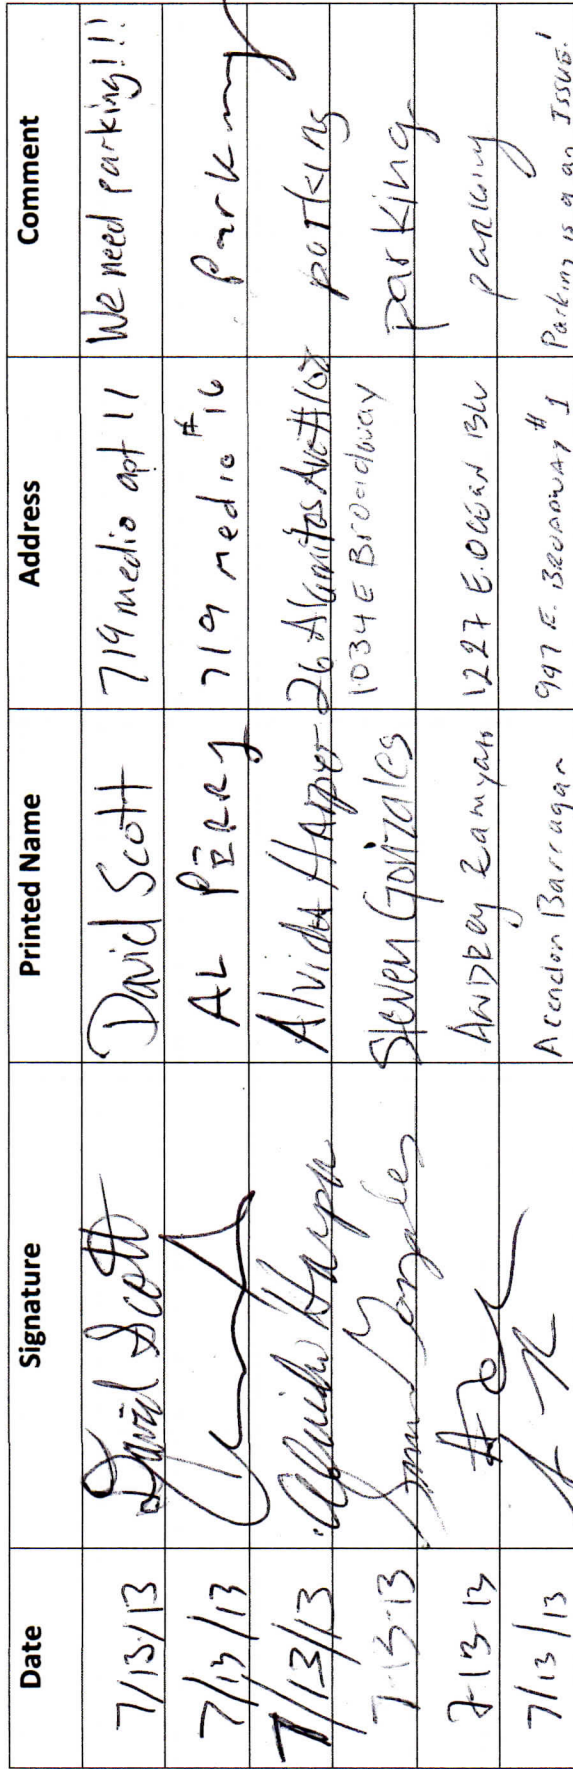 Date Signature Printed Name Address Comment
7/13/13 David Scott David Scott 719 medio apt 11 We need parking!!!
7/13/13 AL PERRY 719 medio #16 Parking
7/13/13 Alvida Harper 26 Alamitos Ave #102 parking
7-13-13 Steven Gonzales 1034 E Broadway parking
7-13-13 ANDREY 1227 E. OCEAN Blv parking
7/13/13 Barragan 947 E. BROADWAY #1 Parking is a an Issue!